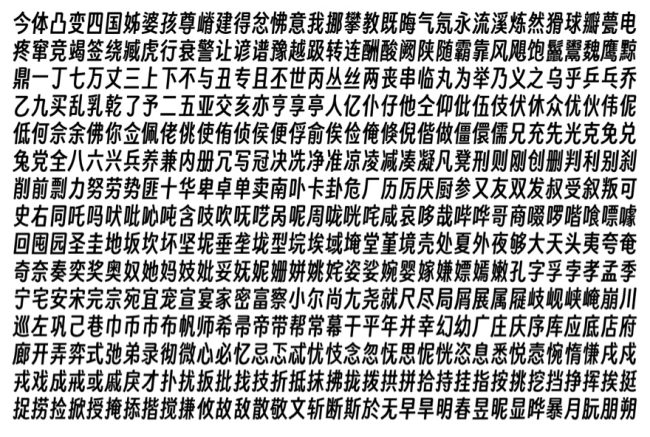 今体凸变四国姊婆孩尊嵴建得忿怫意我挪攀教既晦气氛永流溪炼然猾球瓣甍电
疼窜竞竭签绕臧虎行衰警让谚谱豫越趿转连酬酸阙陕随霸靠风飓饱鬣鬻魏鹰黥
鼎一丁七万丈三上下不与丑专且丕世丙丛丝两丧串临丸为举乃义之乌乎乒乓乔
乙九买乱乳乾了予二五亚交亥亦亨享亭人亿仆仔他仝仰仳伍伎伏休众优伙伟伲
低何佘余佛你佥佩佬佻使侑侦侯便俘俞俟俭俺倚倪偕做僵儇儒兄充先光克免兑
兔党全八六兴兵养兼内册冗写冠决冼净准凉凌减凑凝凡凳刑则刚创删判利别刹
削前剽力努劳势匪十华卑卓单卖南卟卡卦危厂历厉厌厨参又友双发叔受叙叛可
史右同吒吗吠吡吣吨含吱吹呒呓呙呢周咙咣咤咸哀哆哉哔哗哥商啜啰喈喰嘌噱
回囤园圣圭地坂坎坏坚坭垂垄垅型垸埃域埯堂堇境壳处夏外夜够大天头夷夸奄
奇奈奏奕奖奥奴她妈妓妣妥妩妮姗姘姚姹姿娑婉婴嫁嫌嫖嫣嫩孔字孚孛孝孟季
宁宅安宋完宗宛宜宠宣宴家密富察小尔尚尢尧就尺尽局屑展属屣岐岘峡崦崩川
巡左巩己巷巾币市布帆师希帚帝带帮常幕干平年并幸幻幼广庄庆序库应底店府
廊开弄弈式弛弟录彻微心必忆忌忐忒忧忮念忽忱思怩恍恣息悉悦悫惋惰慊戍戌
戎戏成戒或戚戾才扑扰扳批找技折抵抹拂拢拨拱拼拾持挂指按挑挖挡挣挥挨挺
捉捞捡掀授掩掭揩搅搛攸故敌散敬文斩断斯於无早旱明春昱昵显晔暴月朊朋朔